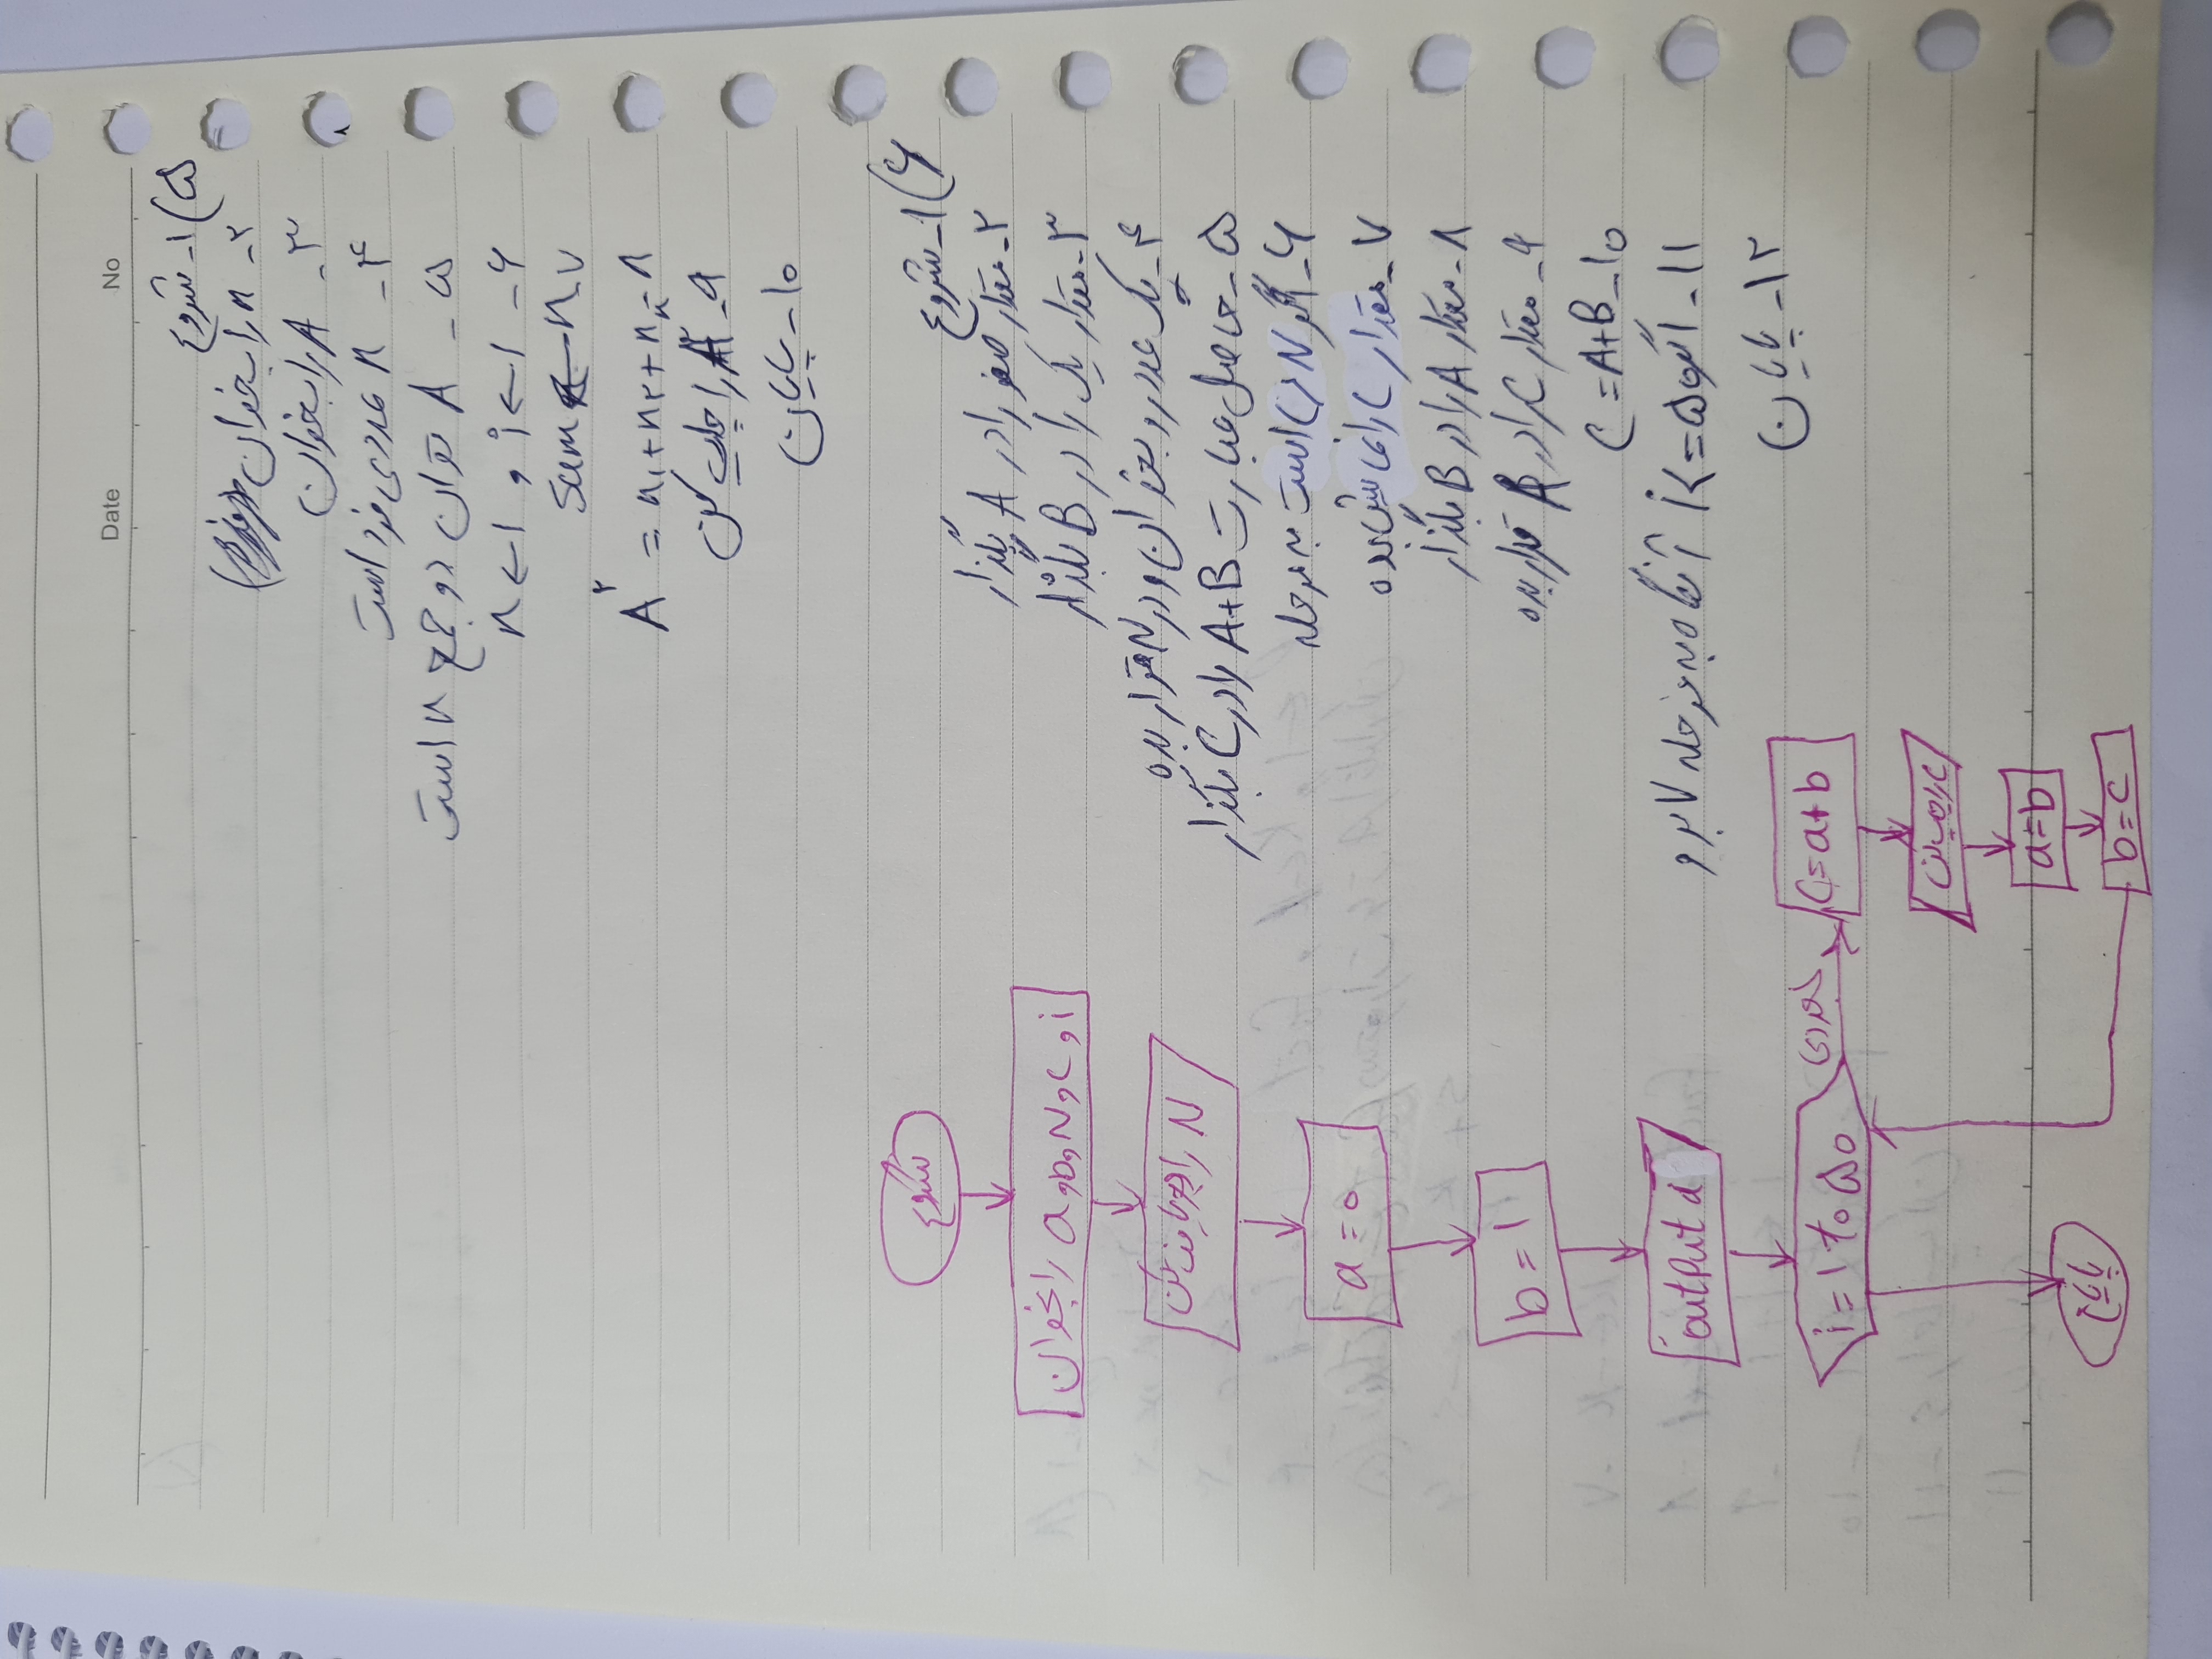 Date No
۵) ۱- شروع
۲- n را بخوان
۳- A را بخوان
۴- n عددی فرد است
۵- A توان دو جمع n است
۶- i ← ۱ و n ← ۱
۷- sum ← n
۸- A² = n۱ + n۲ + n
۹- A² را چاپ کن
۱۰- پایان
۶) ۱- شروع
۲- مقدار صفر را در A بگذار
۳- مقدار یک را در B بگذار
۴- یک عدد رو بخوان و در N قرار بده
۵- حاصل عبارت A+B را در C بگذار
۶- اگر N است به مرحله
۷- مقدار C را نمایش بده
۸- مقدار A را در B بگذار
۹- مقدار C را در قرار بده
۱۰- C = A+B
۱۱- اگر i<=۵۰ آنگاه به مرحله ۷ برو
۱۲- پایان
شروع
a و b و N و C و i را بخوان
N را دریافت کن
a = ۰
b = 1
output a
i = 1 to ۵۰
بعدی
C = a+b
C را چاپ کن
a = b
b = c
پایان